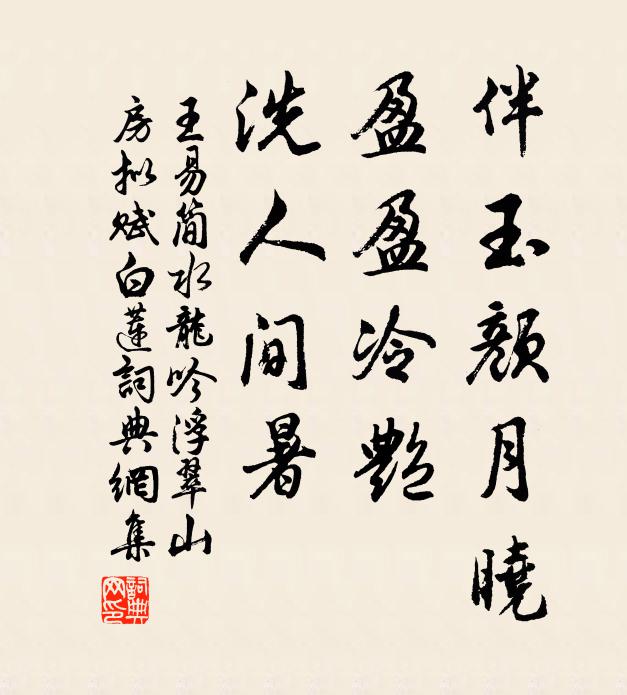 伴玉颜月曉
盈盈冷艷
洗人间暑
王易简水龍吟浮翠山
房拟赋白蓮詞典網集
詞典网印